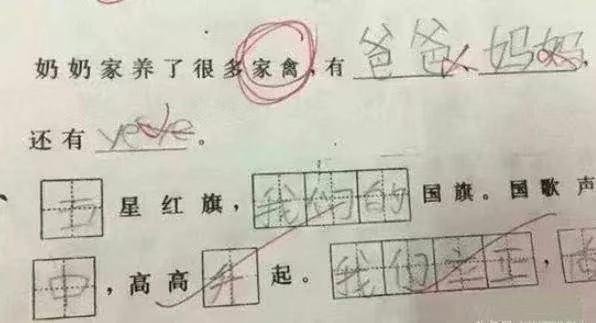 奶奶家养了很多家禽,有爸爸、妈妈,
还有yeye。
、五星红旗,我们的国旗。国歌声
中,高高升起。我们立正,